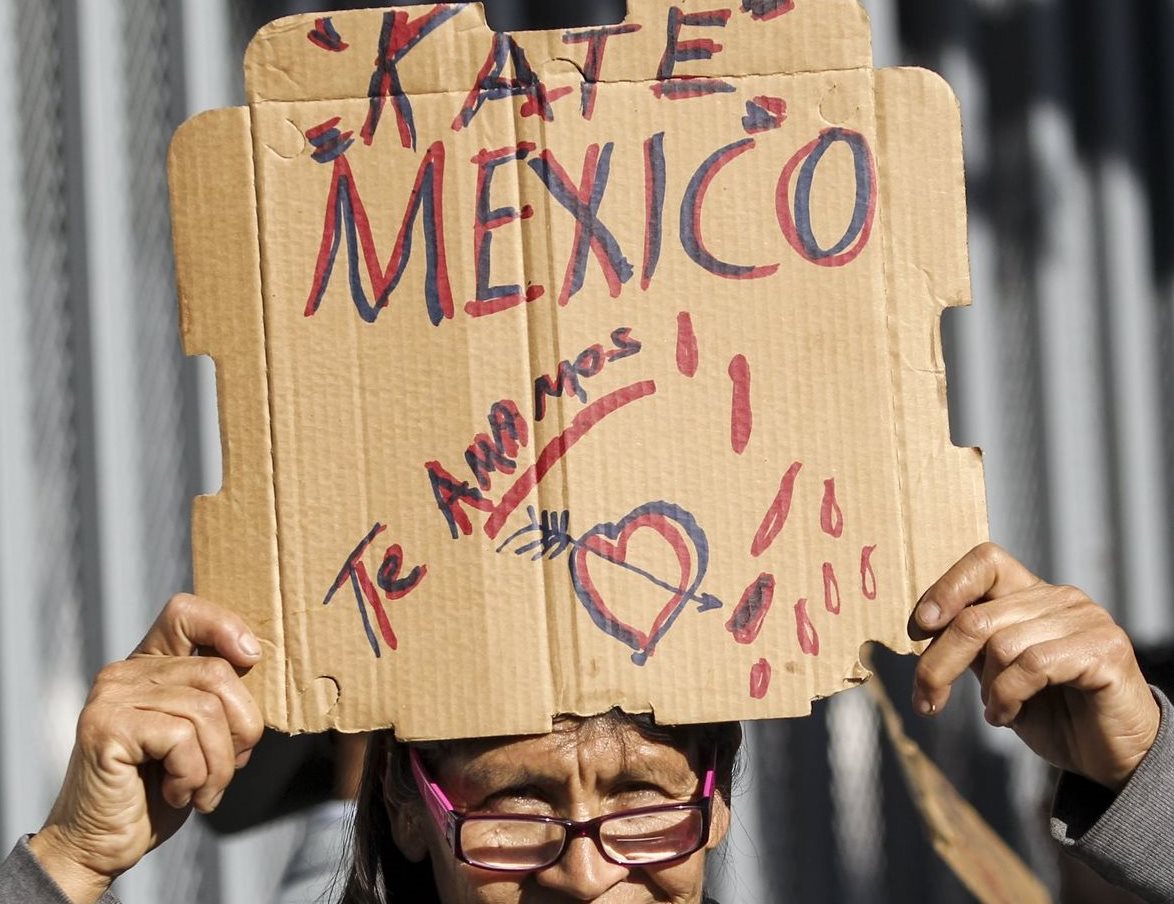 "KATE"
"MEXICO"
Te AMAMOS